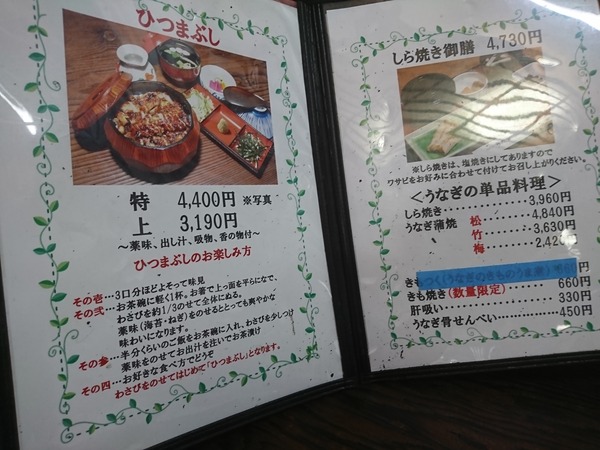 ひつまぶし
特 4,400円 ※写真
上 3,190円
～薬味、出し汁、吸物、香の物付～
ひつまぶしのお楽しみ方
その壱…3口分ほどよそって味見
その弐…お茶碗に軽く1杯。お箸で上っ面を平らになで、
わさびを約1/3のせて全体にぬる。
薬味(海苔・ねぎ)をのせるととっても爽やかな
味わいになります。
その参…半分くらいのご飯をお茶碗に入れ、わさびを少しつけ
薬味をのせてお出汁を注いでお茶漬け
その四…お好きな食べ方でどうぞ
わさびをのせてはじめて「ひつまぶし」となります。
しら焼き御膳 4,730円
※しら焼きは、塩焼きにしてありますので
ワサビをお好みに合わせて付けてお召し上がりください。
＜うなぎの単品料理＞
しら焼き・・・・・・・・・・・3,960円
うなぎ蒲焼 松・・・・・・4,840円
竹・・・・・・3,630円
梅・・・・・・2,420
きもつく(うなぎのきものうま煮)
きも焼き(数量限定)・・・・・・660円
肝吸い・・・・・・・・・・・・330円
うなぎ骨せんべい・・・・・・・450円